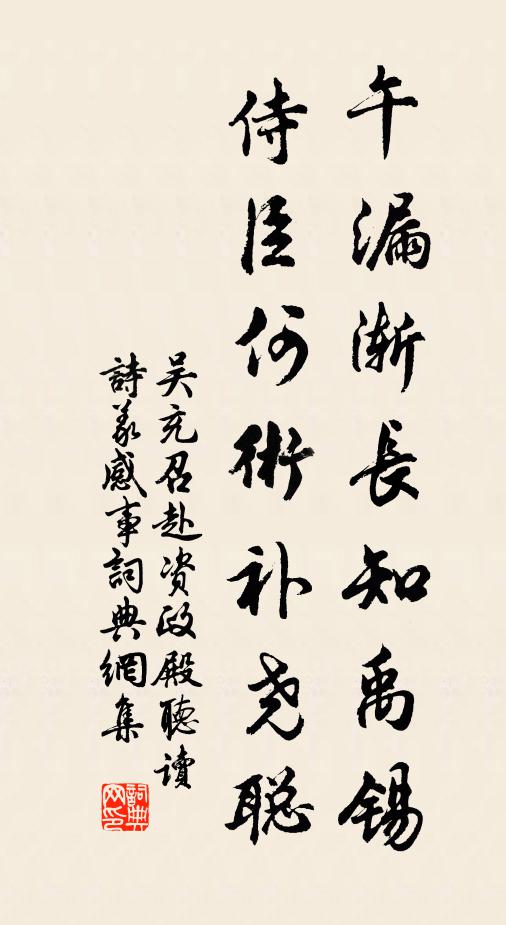 午漏渐長知禹錫
侍臣何術补尧聪
吴充召赴资政殿聽讀
詩義感事詞典網集
詞典网印